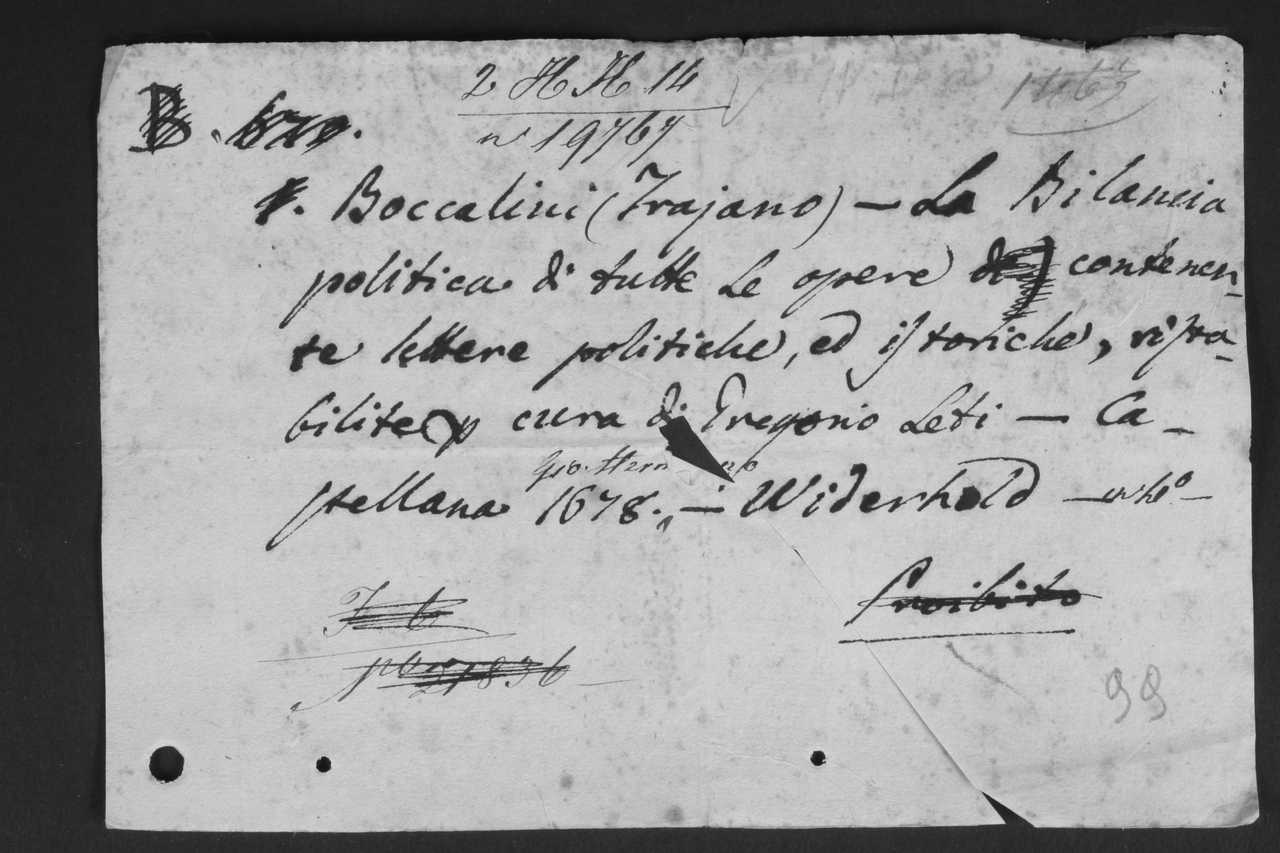 2 H H 14
1463
B.
n° 19767
Boccalini (Trajano) — La Bilancia
politica di tutte le opere contenen-
te lettere politiche, ed istoriche, rista-
bilite p cura di Gregorio Leti — Ca-
stellana 1678. — Widerhold — in 4°
Proibito
1836
99